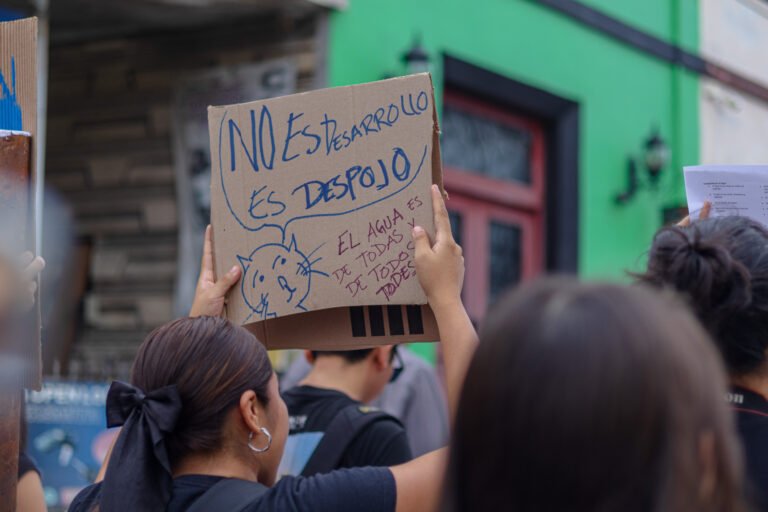 NO ES DESARROLLO
ES DESPOJO
EL AGUA ES
DE TODAS Y
DE TODOS
TODES